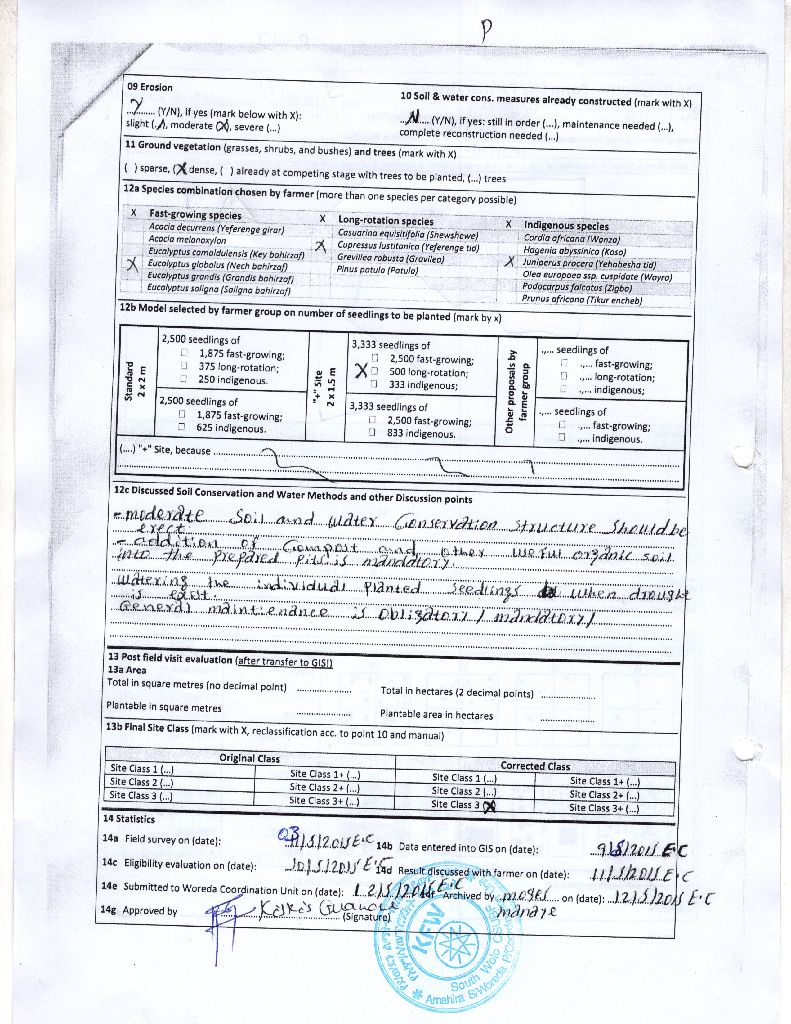 P
09 Erosion
Y (Y/N), if yes (mark below with X):
slight (...), moderate (X), severe (...)
10 Soil & water cons. measures already constructed (mark with X)
N (Y/N), if yes: still in order (...), maintenance needed (...),
complete reconstruction needed (...)
11 Ground vegetation (grasses, shrubs, and bushes) and trees (mark with X)
( ) sparse, (X) dense, ( ) already at competing stage with trees to be planted, (...) trees
12a Species combination chosen by farmer (more than one species per category possible)
X Fast-growing species
Acacia decurrens (Yeferenge girar)
Acacia melanoxylon
Eucalyptus camaldulensis (Key bahirzaf)
X Eucalyptus globulus (Nech bahirzaf)
Eucalyptus grandis (Grandis bahirzaf)
Eucalyptus saligna (Saligna bahirzaf)
X Long-rotation species
Casuarina equisitifolia (Shewshewe)
X Cupressus lustitanica (Yeferenge tid)
Grevillea robusta (Gravilea)
Pinus patula (Patula)
X Indigenous species
Cordia africana (Wanza)
Hagenia abyssinica (Koso)
X Juniperus procera (Yehabesha tid)
Olea europaea ssp. cuspidate (Wayra)
Podocarpus falcatus (Zigba)
Prunus africana (Tikur encheb)
12b Model selected by farmer group on number of seedlings to be planted (mark by x)
Standard
2 x 2 m
2,500 seedlings of
1,875 fast-growing;
375 long-rotation;
250 indigenous.
2,500 seedlings of
1,875 fast-growing;
625 indigenous.
"+" Site
2 x 1.5 m
3,333 seedlings of
2,500 fast-growing;
X 500 long-rotation;
333 indigenous;
3,333 seedlings of
2,500 fast-growing;
833 indigenous.
Other proposals by
farmer group
.,... seedlings of
.,... fast-growing;
.,... long-rotation;
.,... indigenous;
.,... seedlings of
.,... fast-growing;
.,... indigenous.
(....) "+" Site, because
12c Discussed Soil Conservation and Water Methods and other Discussion points
- moderate Soil and Water Conservation structure should be
erect
- addition of Compost and other useful organic soil
into the prepared pits is mandatory.
Watering the individual planted seedlings when drought
is exist.
General maintienance is obligatory / mandatory /
13 Post field visit evaluation (after transfer to GIS!)
13a Area
Total in square metres (no decimal point) ..................
Total in hectares (2 decimal points) ..................
Plantable in square metres ..................
Plantable area in hectares ..................
13b Final Site Class (mark with X, reclassification acc. to point 10 and manual)
Original Class
Corrected Class
Site Class 1 (...) Site Class 1+ (...) Site Class 1 (...) Site Class 1+ (...)
Site Class 2 (...) Site Class 2+ (...) Site Class 2 (...) Site Class 2+ (...)
Site Class 3 (...) Site Class 3+ (...) Site Class 3 (X) Site Class 3+ (...)
14 Statistics
14a Field survey on (date): /5/2015 E.C
14b Data entered into GIS on (date): 9/5/2015 E.C
14c Eligibility evaluation on (date): 10/5/2015 E.C
14d Result discussed with farmer on (date): 11/5/2015 E.C
14e Submitted to Woreda Coordination Unit on (date): 12/5/2015 E.C
14f Archived by moges manaye on (date): 12/5/2015 E.C
14g Approved by
(Signature)
KFW
South Wolo
Amahira S/Woreda P/Coo